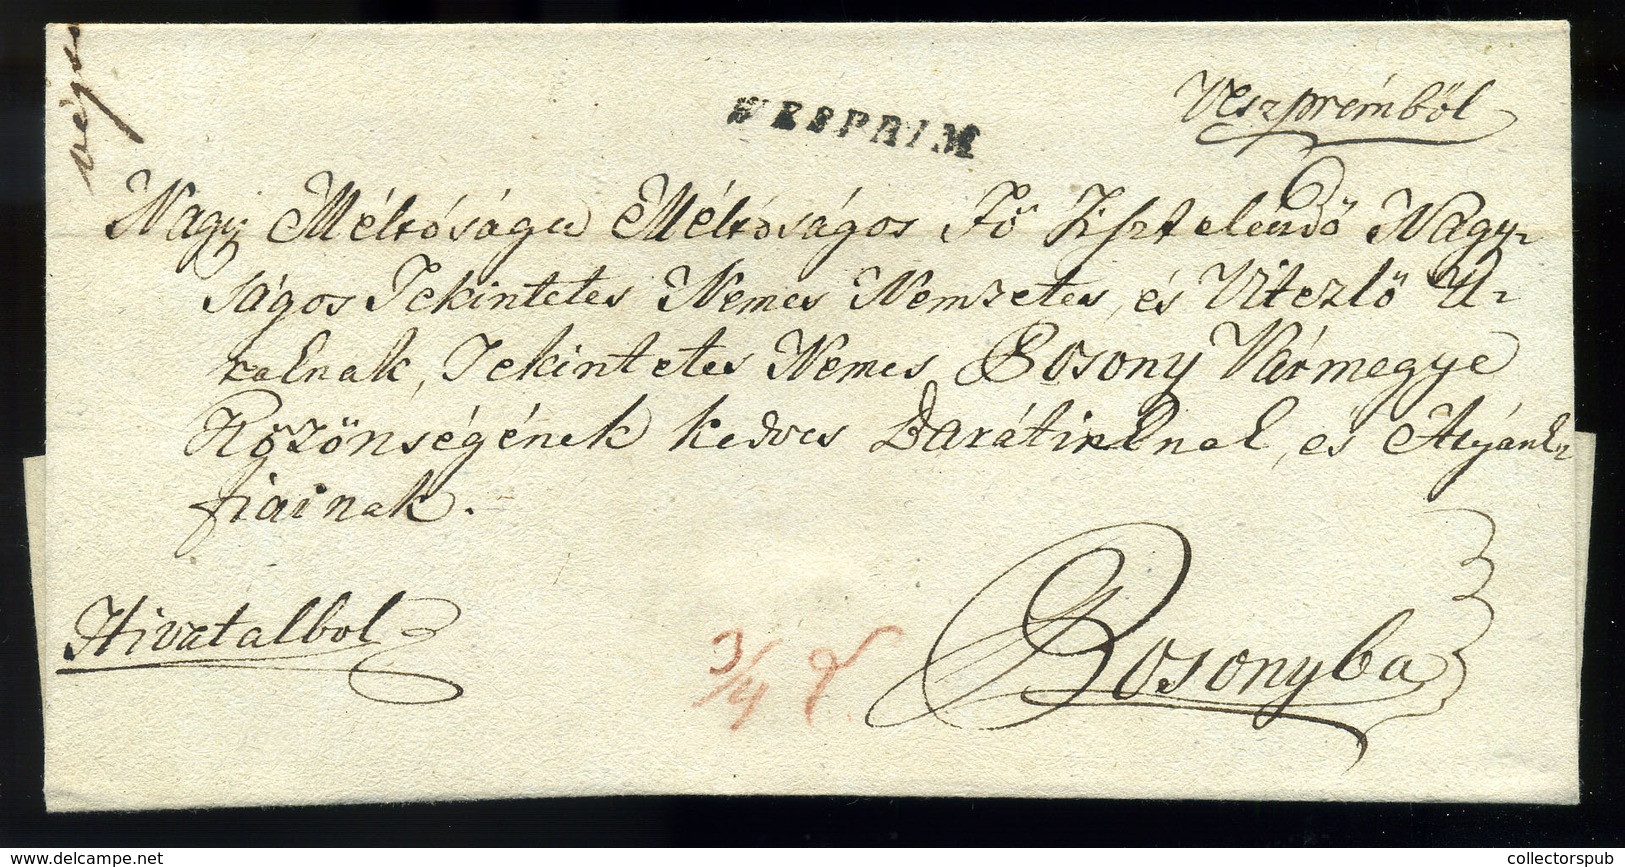 WESPRIM
Veszprémböl
Nagy Méltóságu Méltóságos Fö Tisztelendö Nagy-
ságos Tekintetes Nemes Nemzetes, és Vitezlö U-
raknak, Tekintetes Nemes Posony Vármegye
Közönségének kedves Barátinknak, és Atyánk-
fiainak.
Hivatalbol
3/4
Posonyba
© 
collectorspub